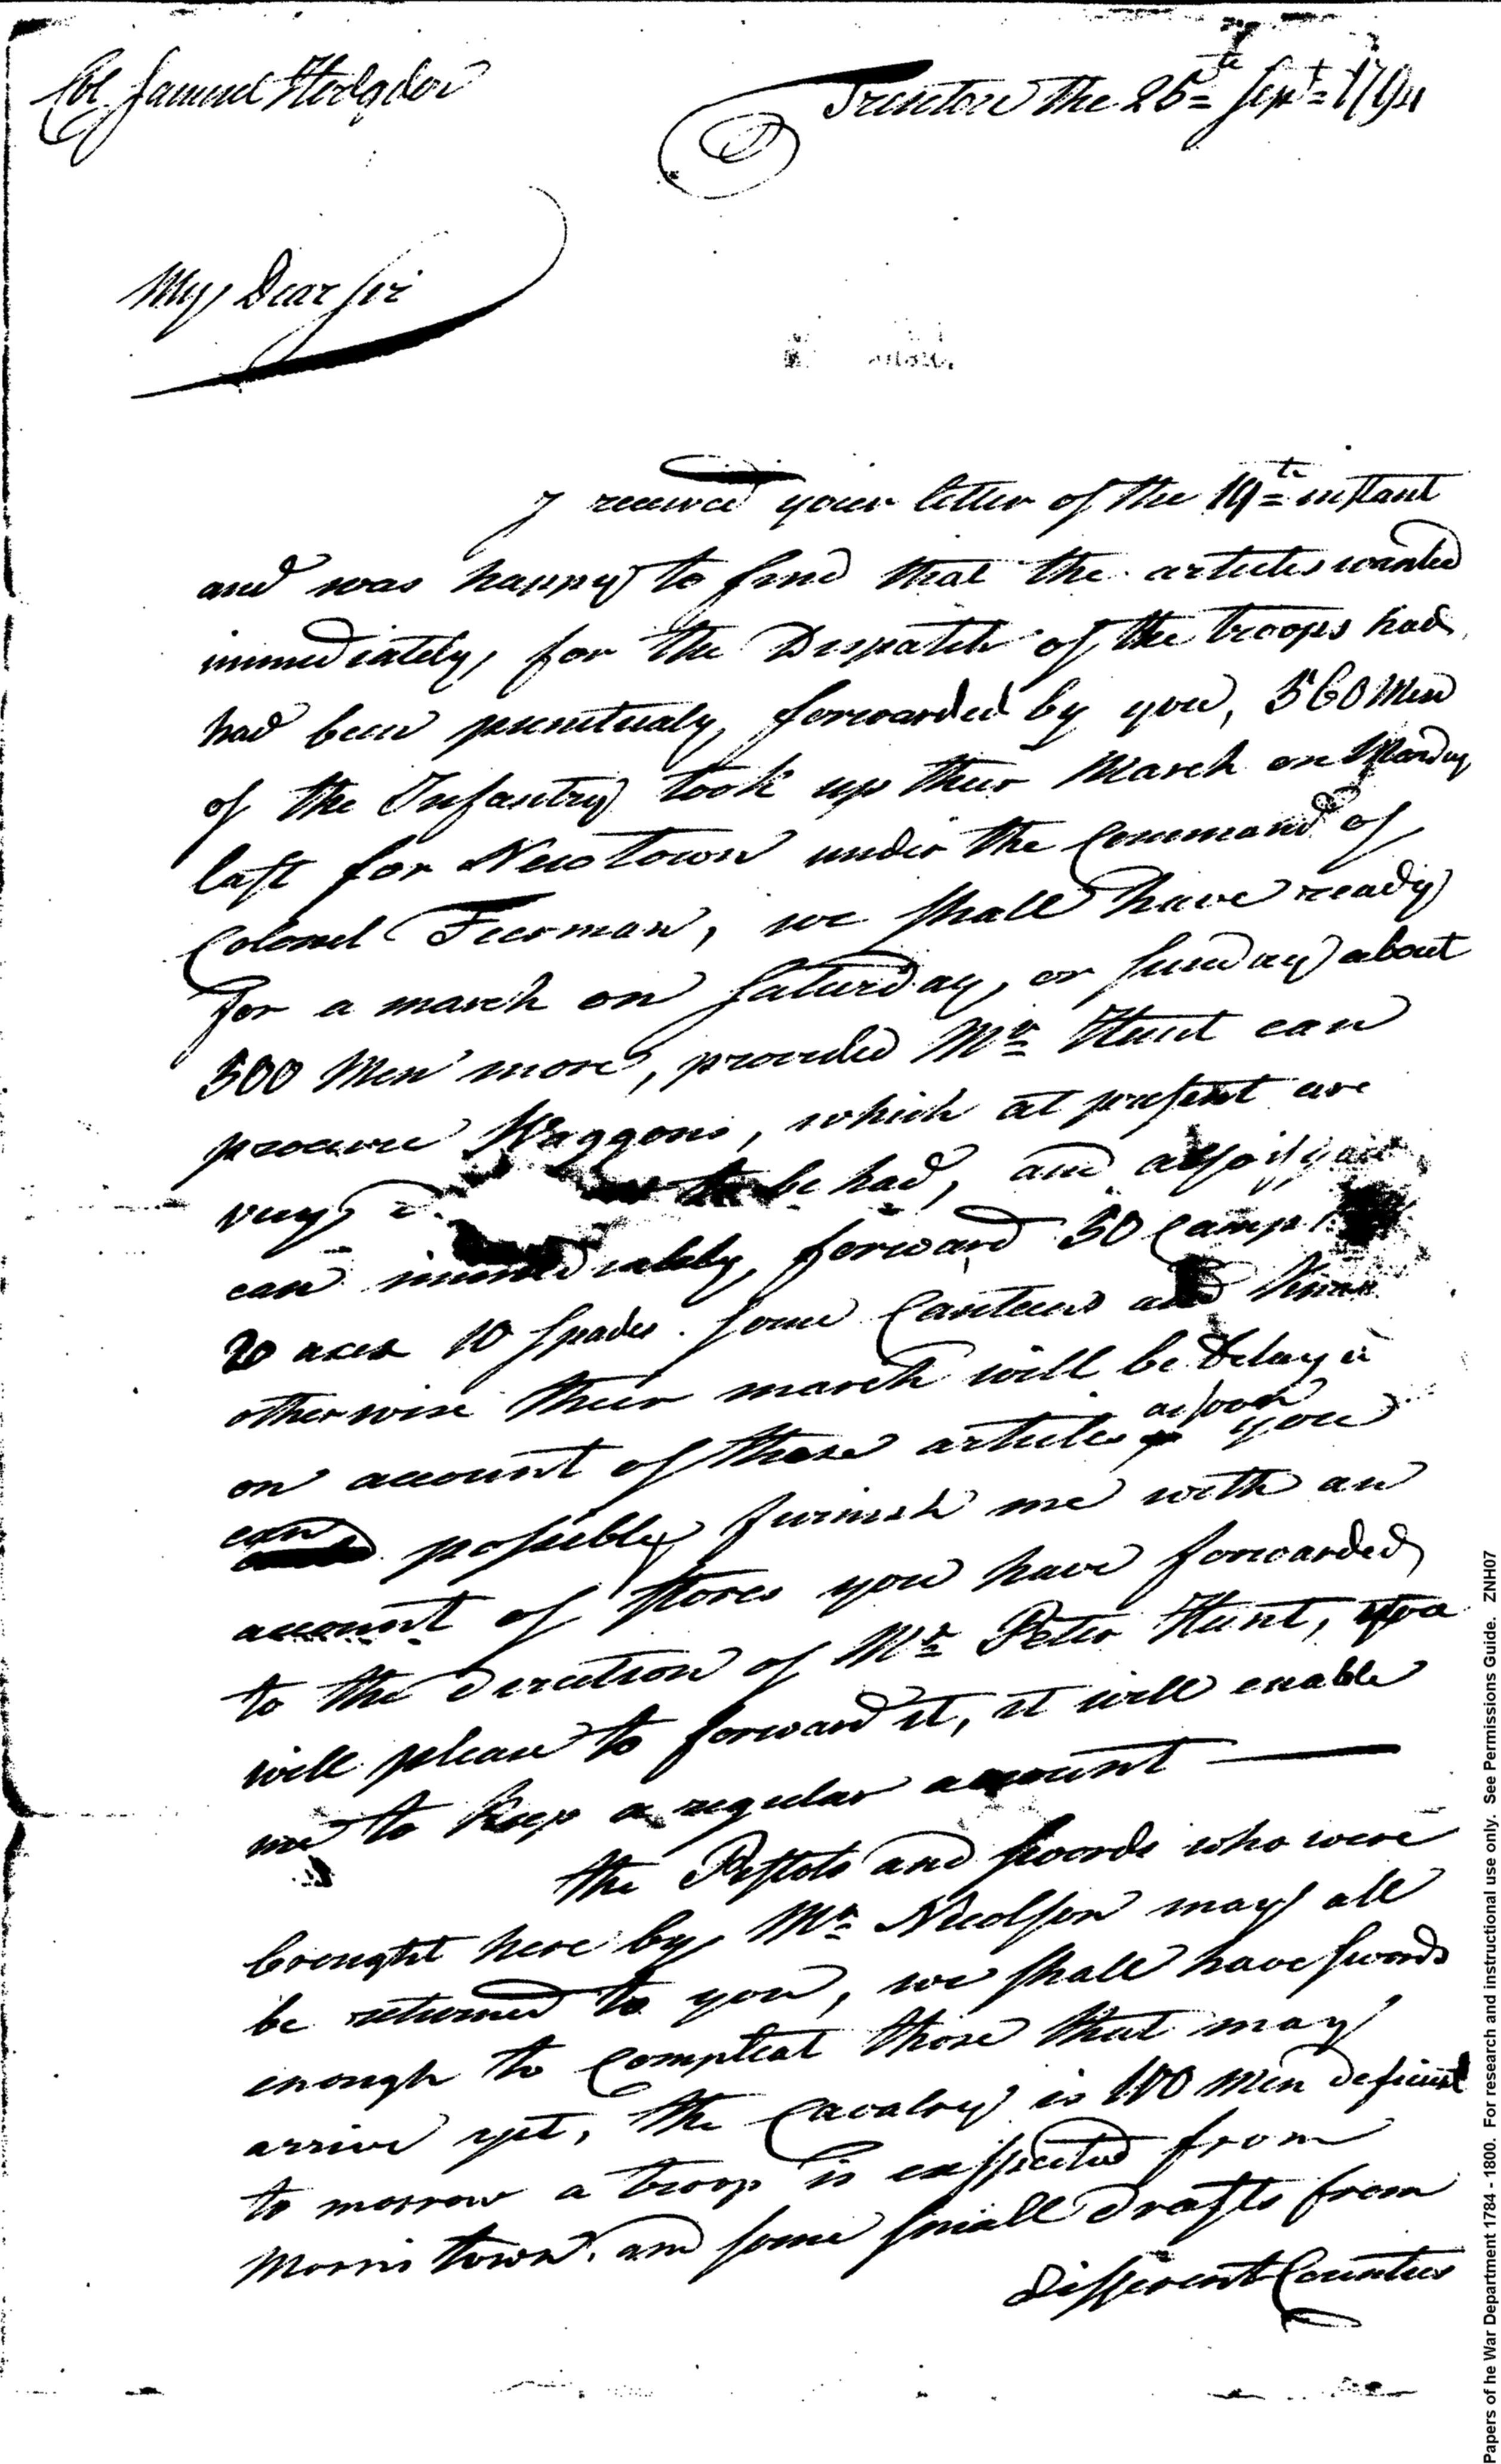 Col Samuel Hodgdon
Trenton the 25th Sept 1794
My Dear Sir
I received your letter of the 19th instant
and was happy to find that the articles wanted
immediately, for the Dispatch of the troops had
had been punctualy forwarded by you, 560 Men
of the Infantry took up their March on Monday
last for New Town under the Command of
Colonel Feerman, we shall have ready
for a march on Saturday, or Sunday about
500 Men more, provided Mr Hunt can
procure Waggons, which at present are
very to be had, and also if you
can immediately forward 50 Camp
20 axes 10 Spades. some Canteens and Knap
otherwise their march will be delay'd
on account of these articles as soon you
can possibly furnish me with an
account of Stores you have forwarded
to the direction of Mr Peter Hunt, you
will please to forward it, it will enable
me to keep a regular account
the Pistols and Swords who were
brought here by Mr Nicolson may all
be returned to you, we shall have swords
enough to Compleat those that may
arrive yet, the Cavalry is 100 Men deficient
to morrow a troop is expected from
Morris town. and some small drafts from
different Counties
Papers of he War Department 1784 - 1800. For research and instructional use only. See Permissions Guide. ZNH07